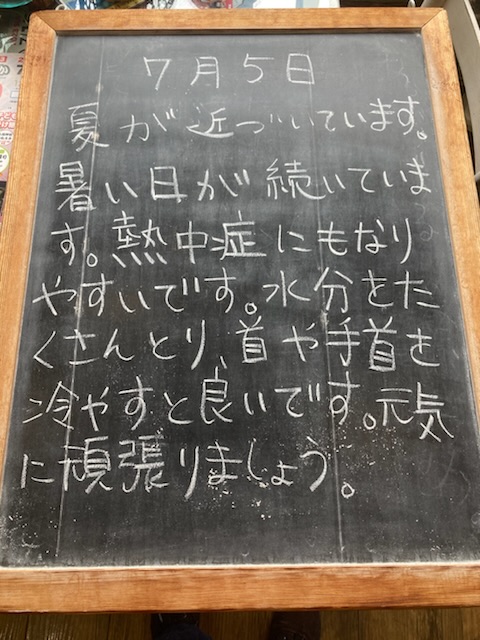 7月5日
夏が近づいています。
暑い日が続いていま
す。熱中症にもなり
やすいです。水分をた
くさんとり、首や手首を
冷やすと良いです。元気
に頑張りましょう。